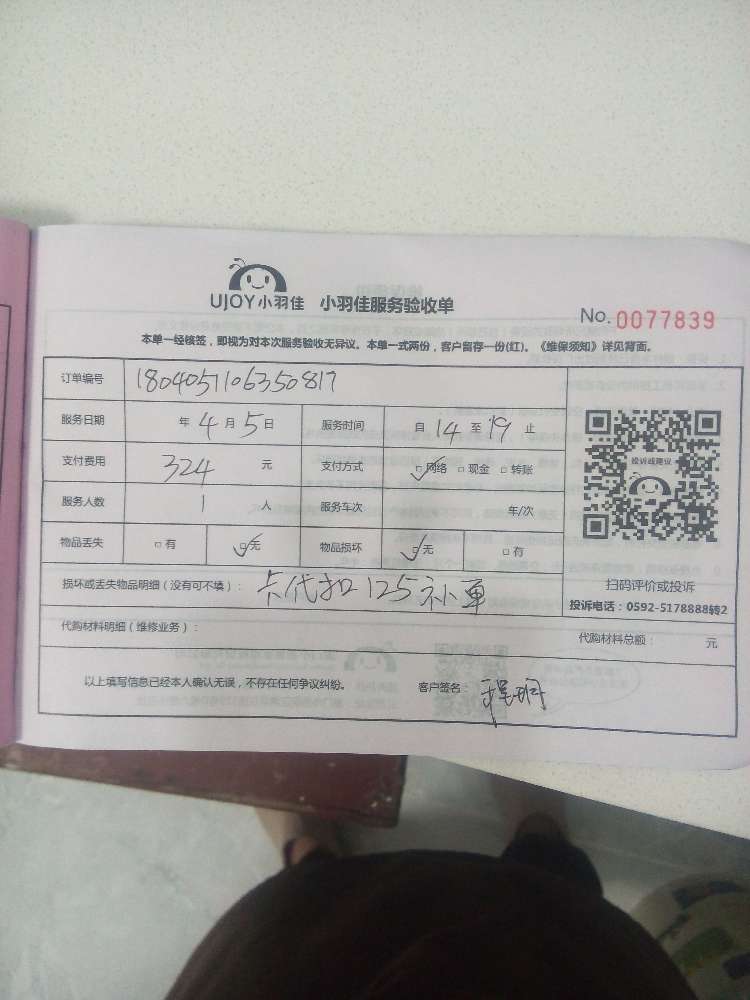 UJOY小羽佳 小羽佳服务验收单
No. 0077839
本单一经核签，即视为对本次服务验收无异议。本单一式两份，客户留存一份(红)。《维保须知》详见背面。
订单编号 1804051106350817
服务日期 年 4 月 5 日 服务时间 自 14 至 19 止
支付费用 324 元 支付方式 ☑网络 □现金 □转账
服务人数 1 人 服务车次 车/次
物品丢失 □有 ☑无 物品损坏 ☑无 □有
投诉或建议
扫码评价或投诉
投诉电话：0592-5178888转2
损坏或丢失物品明细（没有可不填）：卡代扣125补单
代购材料明细（维修业务）： 代购材料总额： 元
以上填写信息已经本人确认无误，不存在任何争议纠纷。 客户签名：